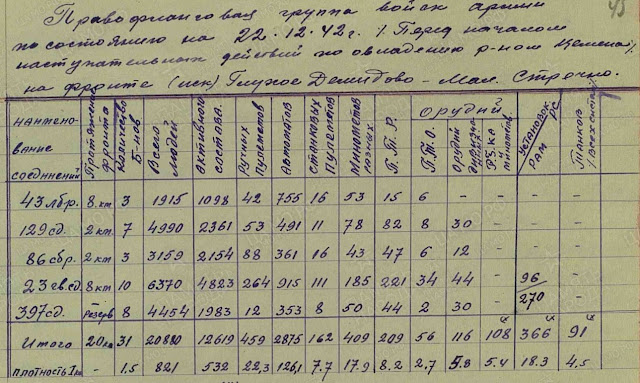 Правофланговая группа войск армии
по состоянию на 22.12.42г. /Перед началом
наступательных действий по овладению р-ном Цемена/
на фронте (иск) Глухое Демидово – Мал. Строчно.
наимено-
вание
соединений
Протяжение
фронта
Количество
б-нов
Всего
людей
активного
состава.
Ручных
Пулеметов
Автоматов
станковых
Пулеметов
Минометов
разных
П. Т. Р.
орудий
П.Т.О.
орудий
РГК и
Установок
РС
РАМ
Танков
/Всех систем/
43 лбр. 8 км 3 1915 1098 42 755 16 53 15 6 - - - -
129 сд. 2 км. 7 4990 2361 53 491 11 78 82 8 30 - - -
86 сбр. 2 км 3 3159 2154 88 361 16 43 47 6 12 - - -
23 гв.сд. 8 км 10 6370 4823 264 915 111 185 221 34 44 - 96 -
397 сд. Резерв 8 4454 1983 12 353 8 50 44 2 30 - 270 -
Итого 20 км 31 20880 12619 459 2875 162 409 209 56 116 108 366 91
плотность 1 км - 1.5 821 532 22,3 126,1 7.7 17.9 8.2 2.7 5.8 5.4 18.3 4.5